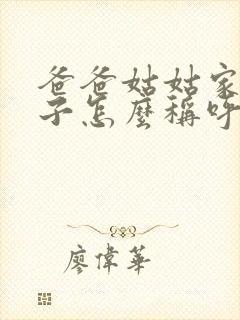 爸爸姑姑家
子怎麼稱呼
廖偉華